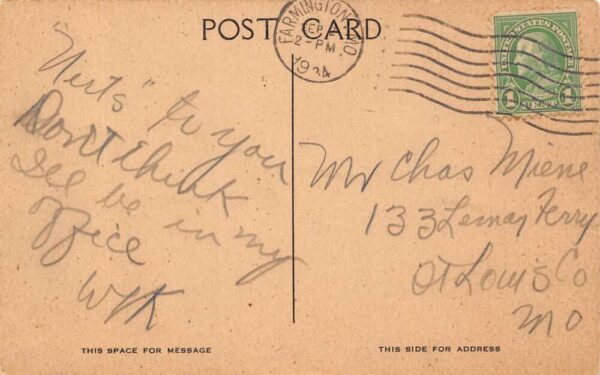 POST CARD
FARMINGTON, MO.
SEP
2-PM
1934
UNITED STATES POSTAGE
1 CENT 1
"Nerts" to you
Don't think
I'll be in my
office
WK
Mr Chas Miene
133 Lemay Ferry
St Louis Co
Mo
THIS SPACE FOR MESSAGE
THIS SIDE FOR ADDRESS